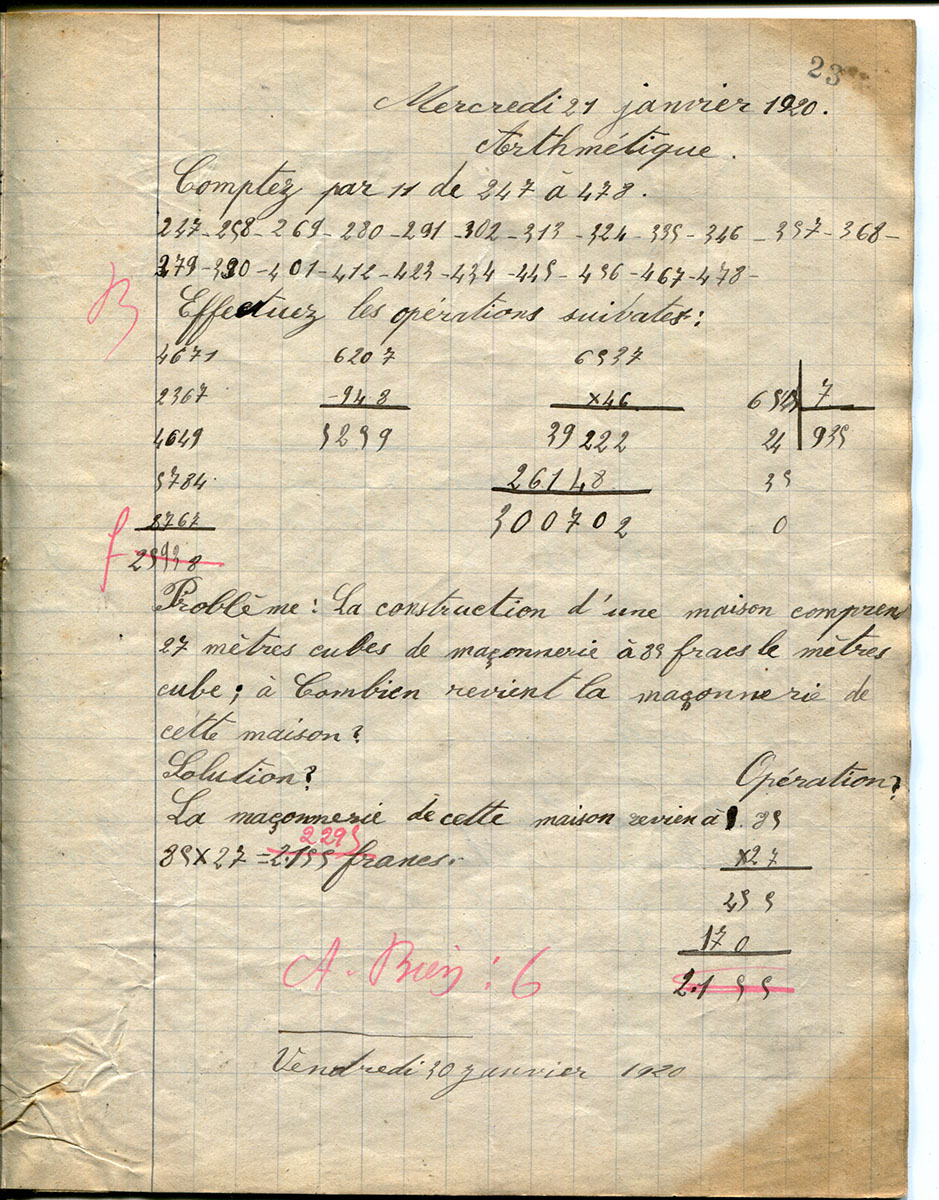 23
Mercredi 21 janvier 1920.
Arthmétique.
Comptez par 11 de 247 à 478.
247-258-269-280-291-302-313-324-335-346-357-368-
379-390-401-412-423-434-445-456-467-478-
B
Effectuez les opérations suivates:
4671 6207 6537
2367 -948 ×46 6545 7
4649 5259 39222 24 935
5784 26148 35
8767 300702 0
f 25938
Problème: La construction d'une maison compren
27 mètres cubes de maçonnerie à 85 fracs le mètres
cube; à Combien revient la maçonnerie de
cette maison?
Solution? Opération?
La maçonnerie de cette maison revien à 85
2295
85×27=2.155 francs. ×27
455
170
A. Bien: 6 2.155
Vendredi 30 janvier 1920